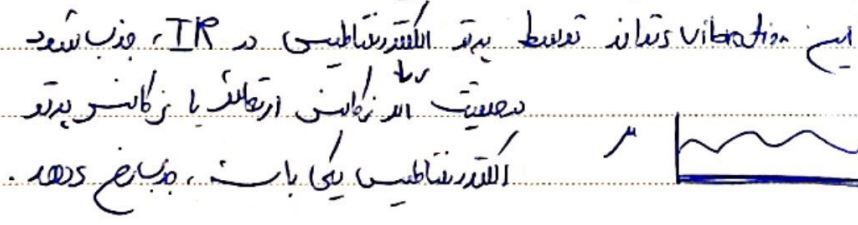 این vibration میتواند توسط پرتو الکترومغناطیس در IR، جذب شود
در حقیقت اگر فرکانس ارتعاش با فرکانس پرتو
الکترومغناطیس یکی باشد، جذب رخ میدهد.
μ